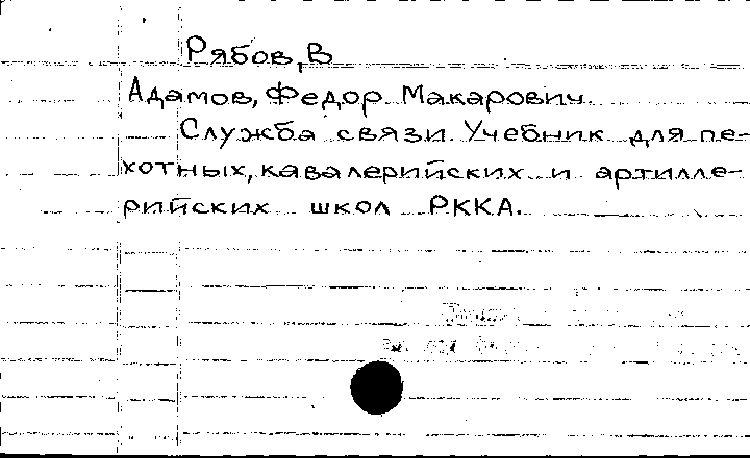 Рябов, В
Адамов, Федор Макарович
Служба связи. Учебник для пе-
хотных, кавалерийских и артилле-
рийских школ РККА.